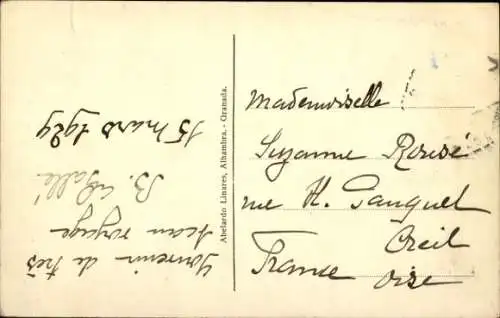 Souvenir de très
beau voyage
B. Gallé
15 Mars 1929
Abelardo Linares, Alhambra.- Granada.
Mademoiselle
Suzanne Rousé
rue H. Pauquet
Creil
Oise
France